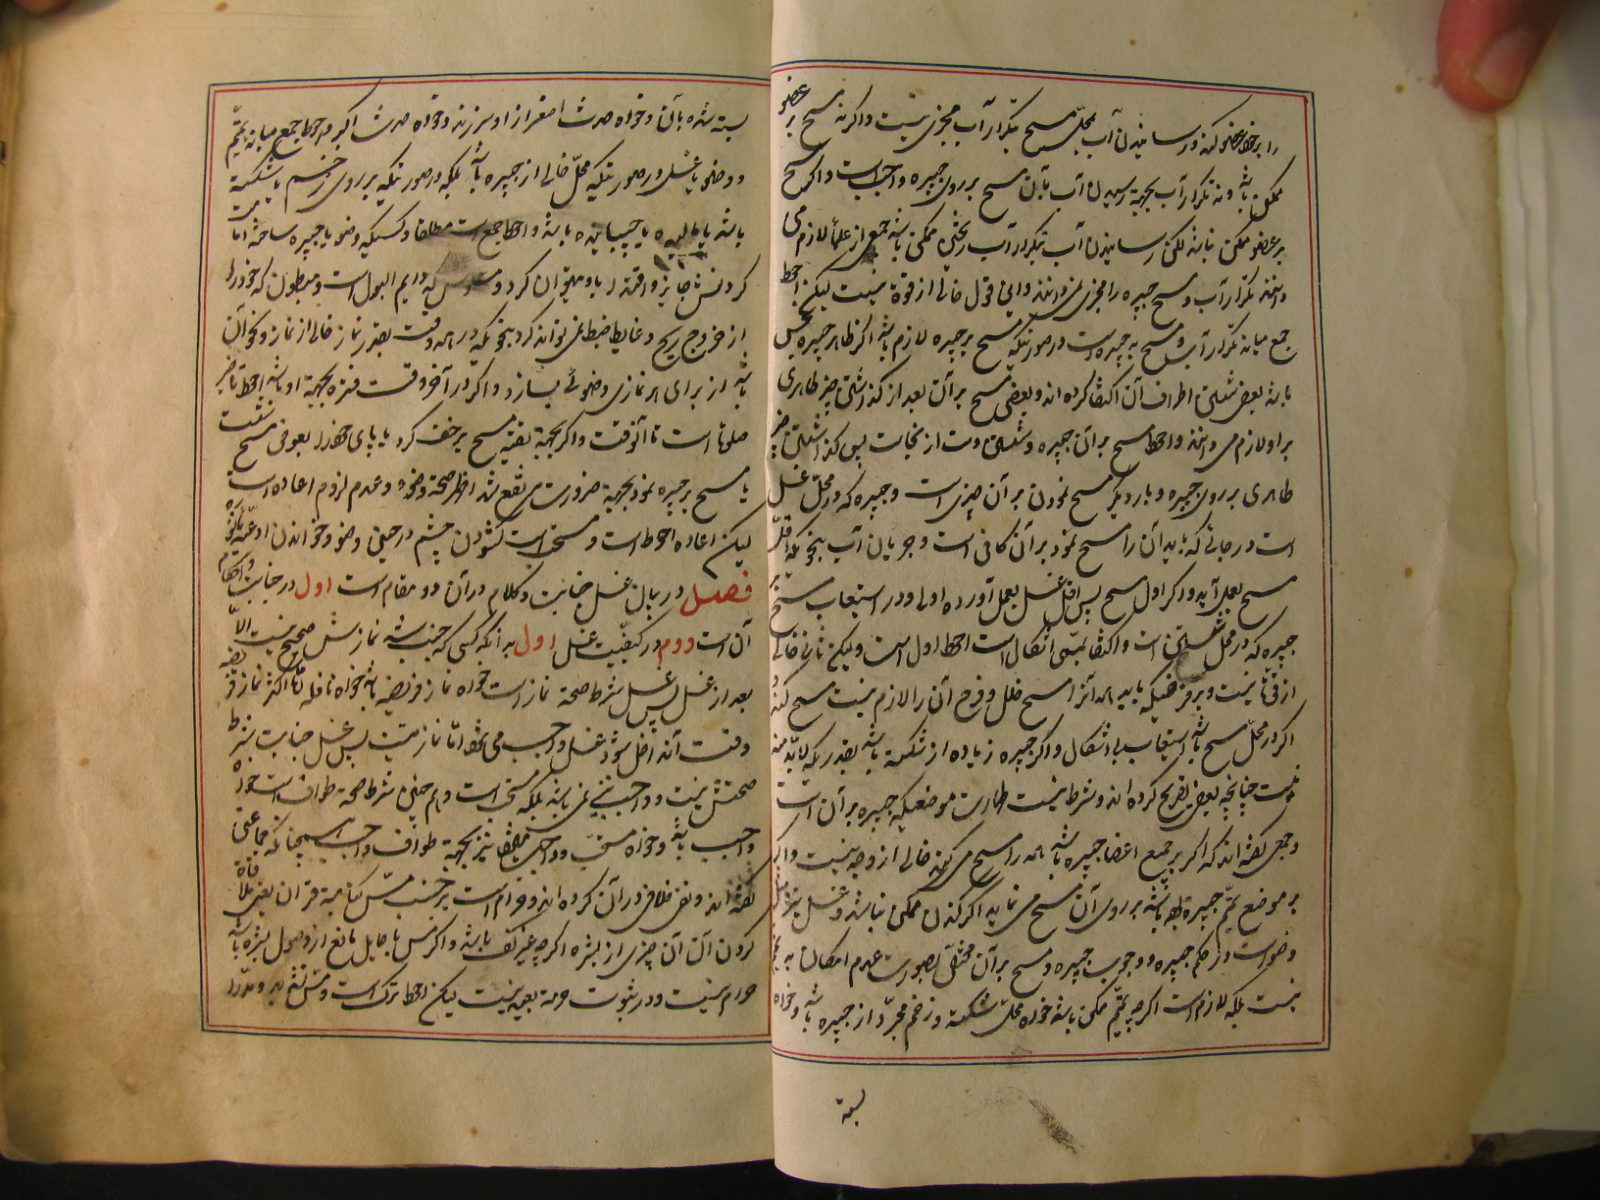 را بر خود عضو کند و رسانیدن آب بمحل مسح بتکرار آب مجزی نیست و اگر نه مسح بر عضو
ممکن باشد و نه تکرار آب بجهة رسیدن آب بآن مسح بر روی جبیره واجب است و اگر مسح
بر عضو ممکن نباشد لکن رسانیدن آب بتکرار آب ریختن ممکن باشد جمعی از علما لازم می
دانند تکرار آب و مسح جبیره را مجزی نمیدانند و این قول خالی از قوة نیست لیکن احوط
جمع میانه تکرار آب و مسح به جبیره است در صورتیکه مسح بر جبیره لازم باشد اگر ظاهر جبیره نجس
باشد بعضی بشستن اطراف آن اکتفا کرده اند و بعضی مسح بر آن بعد از گذاشتن چیز طاهری
بر او لازم می دانند و احوط مسح بر آن جبیره و شستن دست از نجاست پس گذاشتن چیز
طاهری بر روی جبیره و بار دیگر مسح نمودن بر آن چیزی است و جبیره که در محل غسل
است در جائی که باید آن را مسح نمود بر آن کافی است و جریان آب بنحو که اقل
مسح بعمل آید و اگر اول مسح پس اقل غسل بعمل آورده اولی و در استیعاب مسح
جبیره که در محل شستن است و اکتفا بمسمی اشکال است احوط اول است و لیکن ثانی خالی
از قوة نیست و بر فرضیکه باید همه آنرا مسح خلل و فرج آن را لازم نیست مسح کند و
اگر در محل مسح باشد استیعاب بی اشکال و اگر جبیره زیاده از شکسته باشد بقدریکه لابد منه
نیست چنانچه بعضی تصریح کرده اند و شرط نیست طهارت موضعیکه جبیره بر آن است
و جمعی گفته اند که اگر بر جمیع اعضا جبیره باشد همه را مسح می کند خالی از وجه نیست و اگر
بر موضع تیمم جبیره باشد بر روی آن مسح می نماید اگر کندن ممکن نباشد و غسل نیز مثل
وضو است در حکم جبیره و وجوب جبیره و مسح بر آن مختص بصورت عدم امکان به تیمم
نیست بلکه لازم است اگر چه تیمم ممکن باشد خواه محل شکسته و زخم مجرد از جبیره باشد و خواه
بسته
بسته شده بآن و خواه حدث اصغر از او سر زند و خواه حدث اکبر و احوط جمع میانه تیمم
و وضو یا غسل در صورتیکه محل خالی از جبیره باشد بلکه در صورتیکه بر روی زخم یا شکسته
باشد یا چسبانیده باشد و احوط جمع است مطلقا و کسیکه وضو با جبیره ساخته امامت
کردنش جایز و اقتدا باو میتوان کرد و مسلوس که دایم البول است و مبطون که خود را
از خروج ریح و غایط ضبط نمی تواند کرد بنحویکه در همه وقت بقدر نماز خالی از نماز و نحو آن
باشد از برای هر نمازی وضوئی بسازد و اگر در آخر وقت فتره بجهة او باشد احوط تاخیر
صلوة است تا آنوقت و اگر بجهة تقیه مسح بر خف کرد یا پای خود را بعوض مسح شست
یا مسح بر جبیره نمود بجهة ضرورت مرتفع شد اظهر صحة وضو و عدم لزوم اعاده است
لیکن اعاده احوط است و مستحب است گشودن چشم در حین وضو و خواندن ادعیه ماثوره
فصل در بیان غسل جنابت و کلام در آن دو مقام است اول در جنابت و احکام
آن است دوم در کیفیت غسل اول بدانکه کسی که جنب شد نمازش صحیح نیست الا
بعد از غسل پس غسل شرط صحة نماز است خواه نماز فریضه باشد خواه نافله اما اکثر نماز فریضه
وقت آن داخل شود غسل واجب می شود اما نماز میت پس غسل جنابت شرط
صحتش نیست و واجب نیز نمی باشد بلکه مستحب است و هم چنین شرط صحة طواف است خواه
واجب باشد و خواه مستحب و واجب میشود نیز بجهة طواف واجب همچنانکه جماعتی
گفته اند و نفی خلاف در آن کرده اند و حرام است بر جنب مس کتابت قران یعنی ملاقاة
کردن آن آن چیزی از بشره اگر چه غیر کف باشد و اگر مس با حایل مانع از وصول بشره باشد
حرام نیست و در ثبوت حرمة بعید نیست لیکن احوط ترک است و مس تشدید و مد را